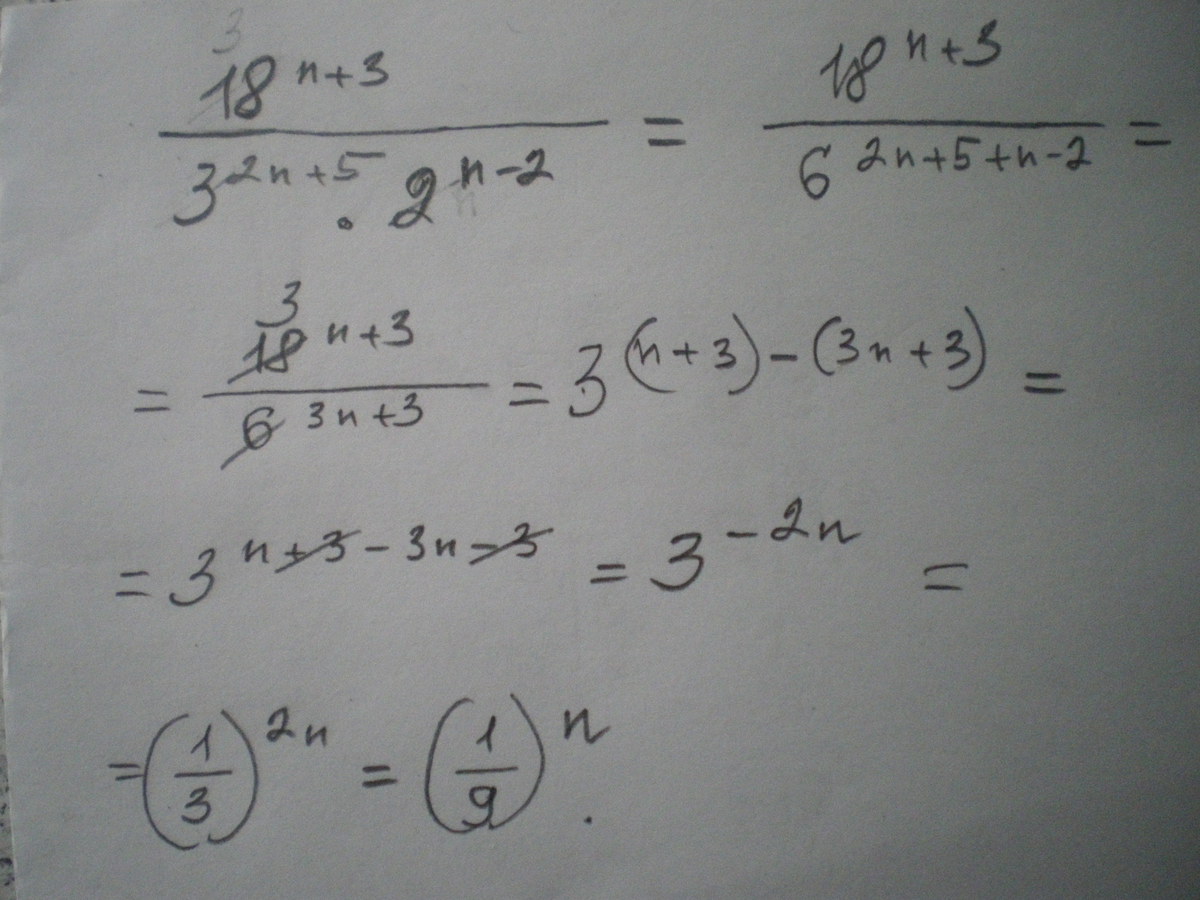 3
18^{n+3} / 3^{2n+5} · 2^{n-2} = 18^{n+3} / 6^{2n+5+n-2} =
= 18^{n+3} / 6^{3n+3} = 3^{(n+3)-(3n+3)} =
3
= 3^{n+3-3n-3} = 3^{-2n} =
= (1/3)^{2n} = (1/9)^n.